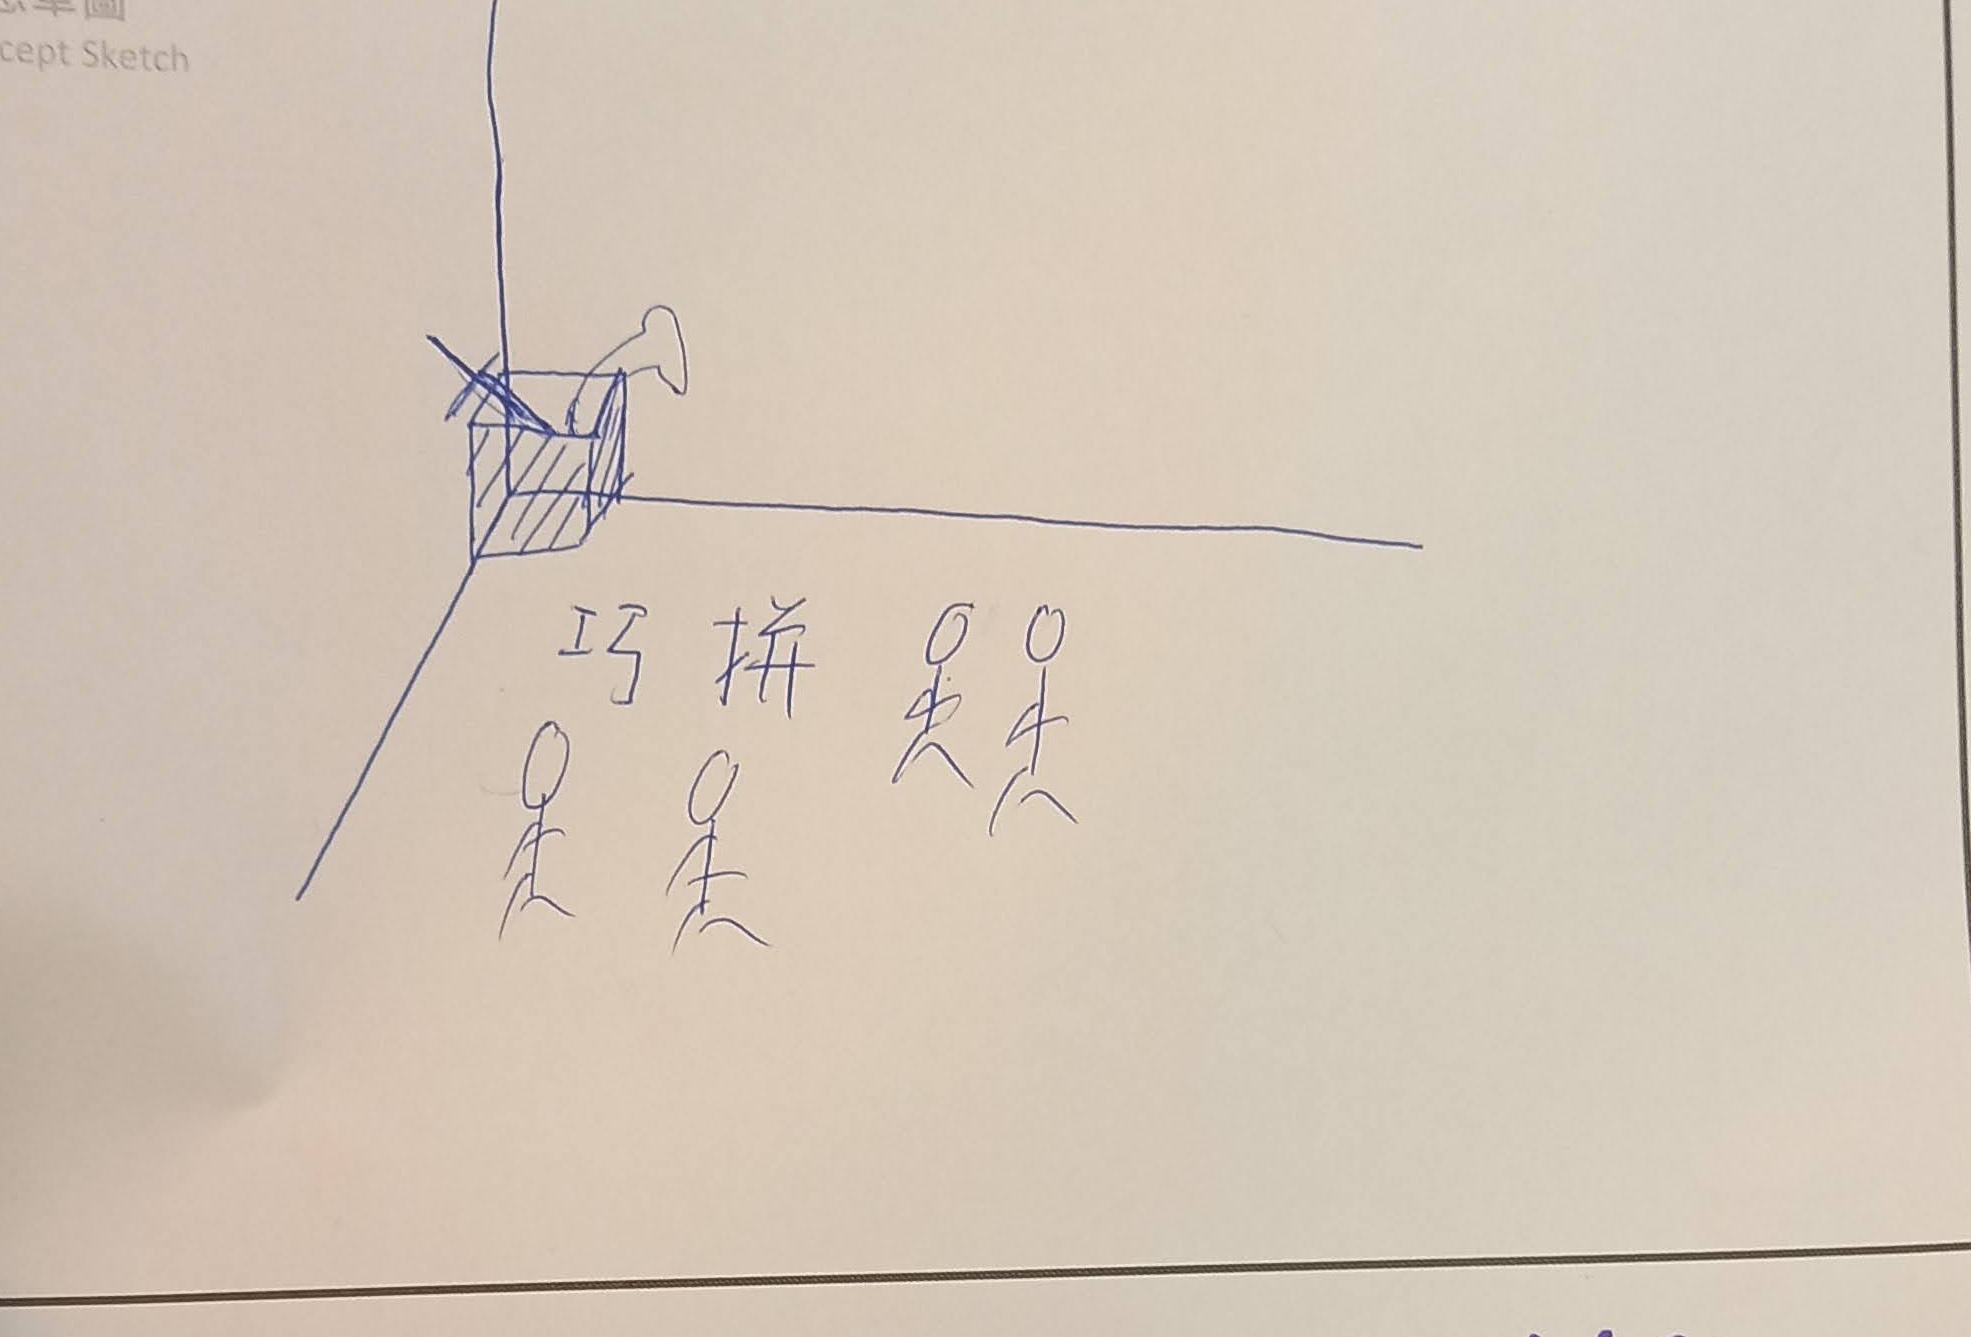 草圖
cept Sketch
巧拼